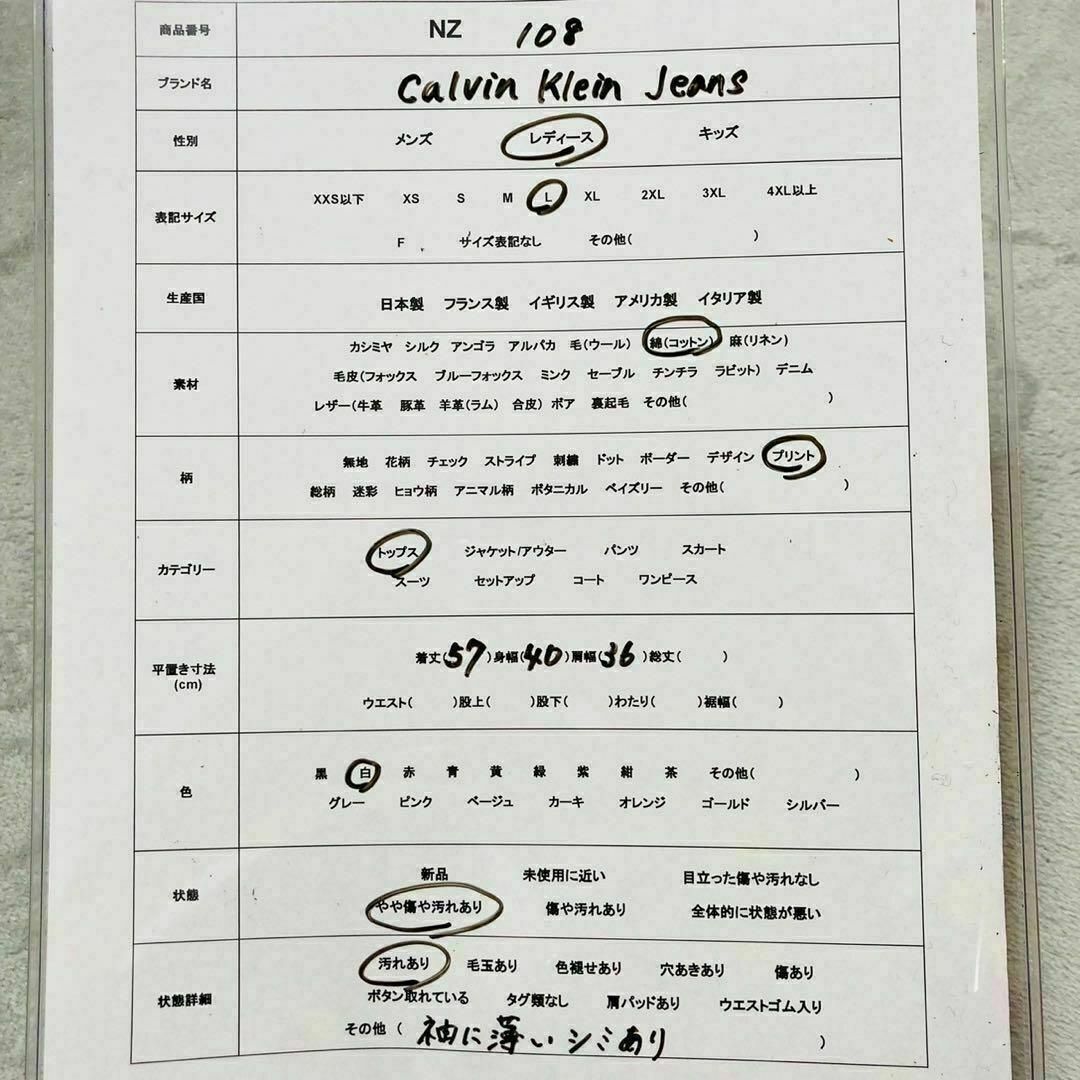 商品番号 NZ 108
ブランド名 Calvin Klein Jeans
性別 メンズ レディース キッズ
表記サイズ
XXS以下 XS S M L XL 2XL 3XL 4XL以上
F サイズ表記なし その他( )
生産国 日本製 フランス製 イギリス製 アメリカ製 イタリア製
素材
カシミヤ シルク アンゴラ アルパカ 毛(ウール) 綿(コットン) 麻(リネン)
毛皮(フォックス ブルーフォックス ミンク セーブル チンチラ ラビット) デニム
レザー(牛革 豚革 羊革(ラム) 合皮) ボア 裏起毛 その他( )
柄
無地 花柄 チェック ストライプ 刺繍 ドット ボーダー デザイン プリント
総柄 迷彩 ヒョウ柄 アニマル柄 ボタニカル ペイズリー その他( )
カテゴリー
トップス ジャケット/アウター パンツ スカート
スーツ セットアップ コート ワンピース
平置き寸法
(cm)
着丈(57)身幅(40)肩幅(36)総丈( )
ウエスト( )股上( )股下( )わたり( )裾幅( )
色
黒 白 赤 青 黄 緑 紫 紺 茶 その他( )
グレー ピンク ベージュ カーキ オレンジ ゴールド シルバー
状態
新品 未使用に近い 目立った傷や汚れなし
やや傷や汚れあり 傷や汚れあり 全体的に状態が悪い
状態詳細
汚れあり 毛玉あり 色褪せあり 穴あきあり 傷あり
ボタン取れている タグ類なし 肩パッドあり ウエストゴム入り
その他 ( 袖に薄いシミあり )